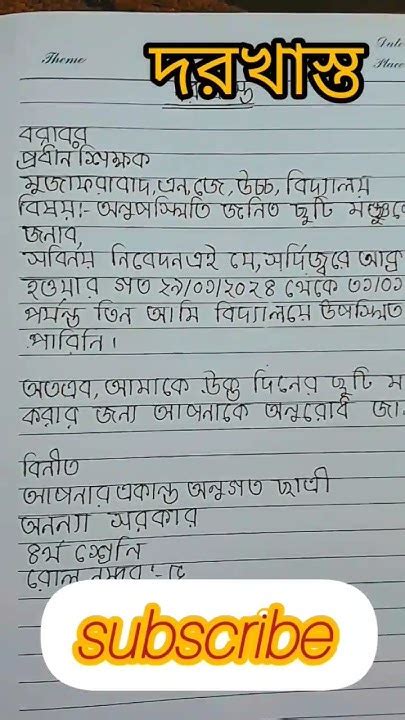 Theme
Date
Place
দরখাস্ত
বরাবর
প্রধান শিক্ষক
মুজাফরাবাদ,এন,জে,উচ্চ, বিদ্যালয়
বিষয়:- অনুপস্থিতি জনিত ছুটি
জনাব,
সবিনয় নিবেদন এই যে,সর্দিজ্বরে
হওয়ায় গত ২৯/০১/২০২৪ থেকে ৩১/০১
পর্যন্ত তিন আমি বিদ্যালয়ে উপস্থিত
পারিনি।
অতএব, আমাকে উক্ত দিনের ছুটি ম
করার জন্য আপনাকে অনুরোধ জা
বিনীত
আপনার একান্ত অনুগত ছাত্রী
অনন্যা সরকার
৪র্থ শ্রেনি
রোল
subscribe